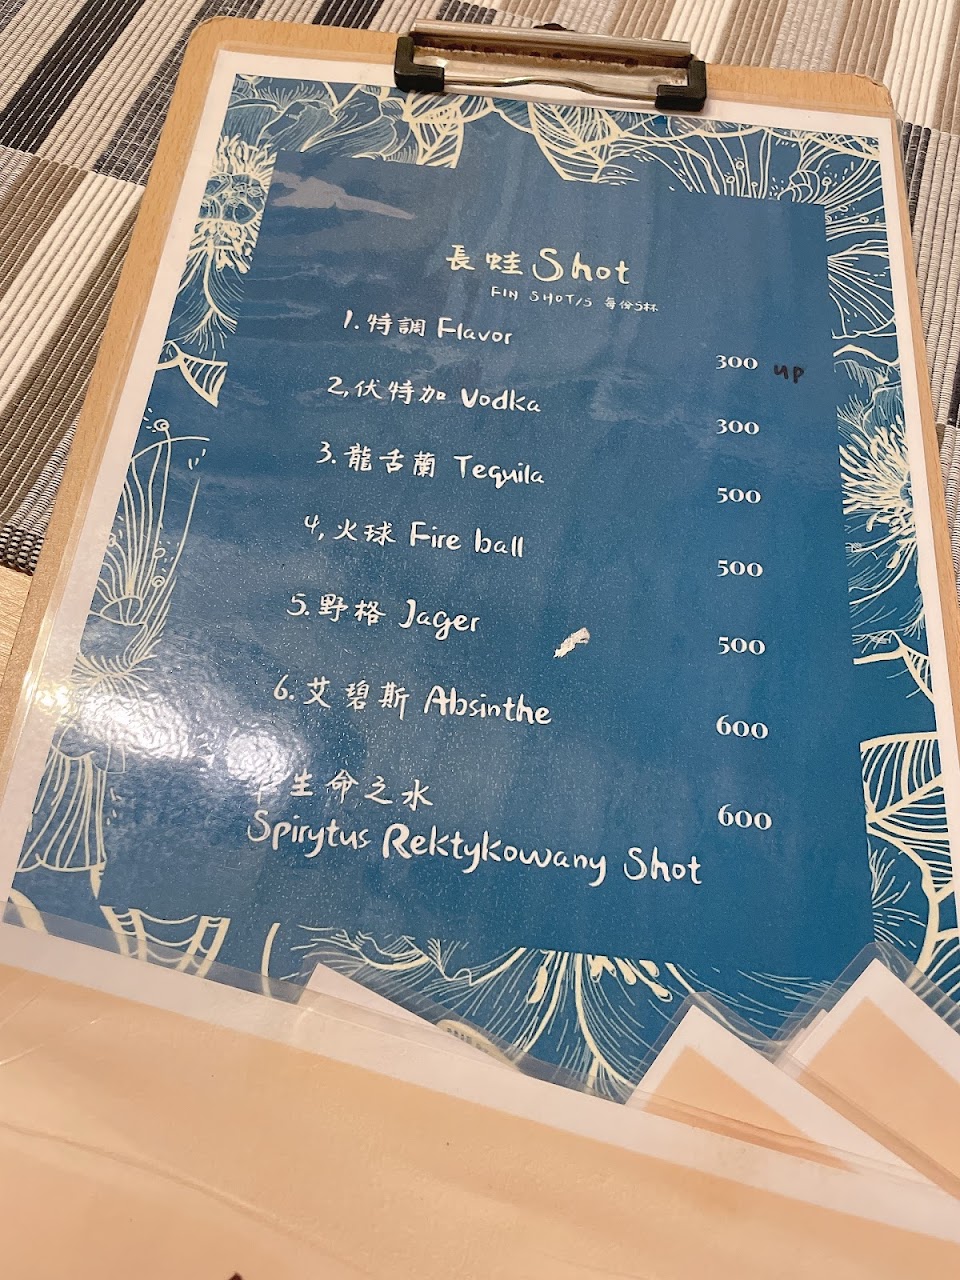 長蛙 Shot
FIN SHOT/S 每份5杯
1. 特調 Flavor 300 up
2, 伏特加 Vodka 300
3. 龍舌蘭 Tequila 500
4, 火球 Fire ball 500
5. 野格 Jager 500
6. 艾碧斯 Absinthe 600
生命之水 600
Spirytus Rektykowany Shot